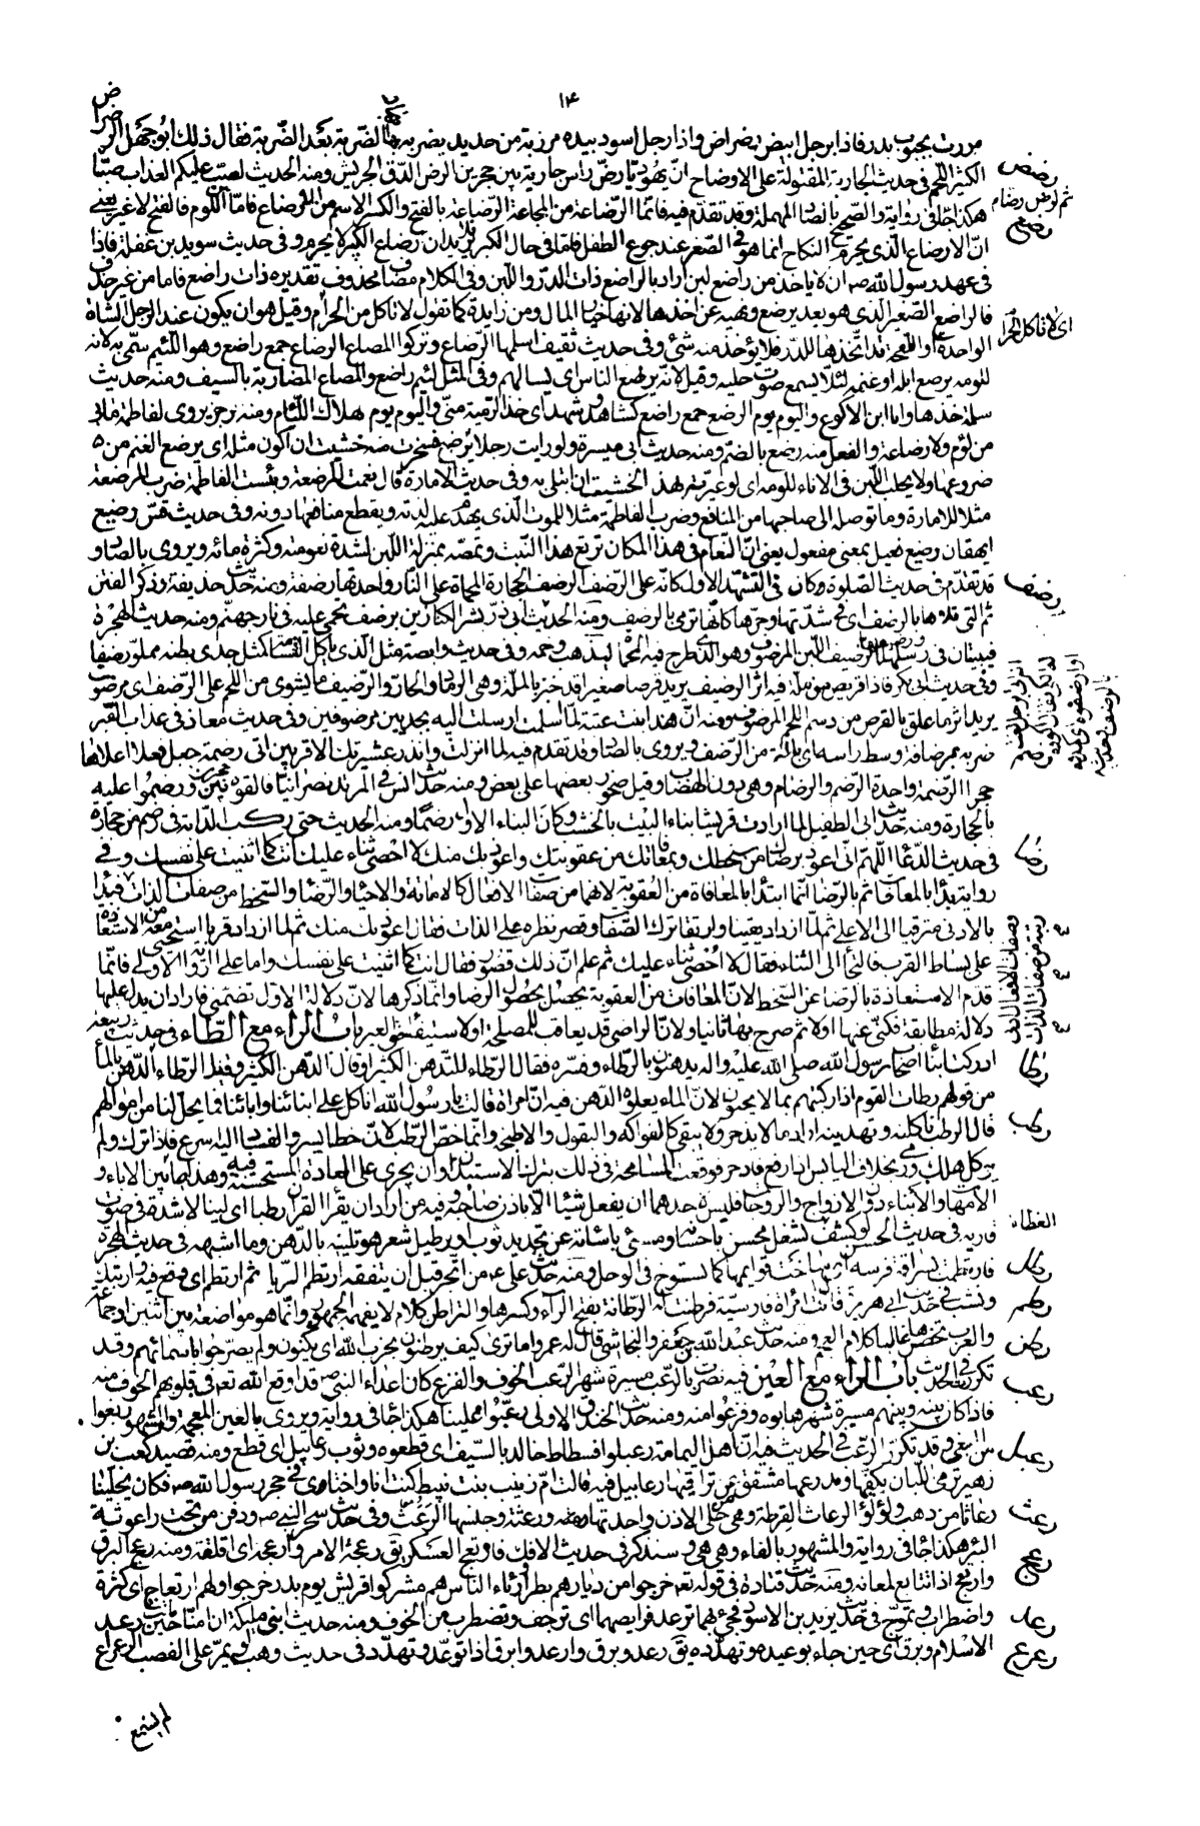 ١٤
مررت بجبوب بدر فاذا برجل ابيض رضراض واذا رجل اسود بيده مرزبة من حديد يضربه بها الضربة بعد الضربة فقال ذلك ابوجهل الرضراض
رضض
الكثير اللحم فى حديث الجارية المقتولة على الاوضاح ان يهوديا رض راس جارية بين حجرين الرض الدق الجريش ومنه الحديث لصب عليكم العذاب صبا
ثم لرض رضا
هكذا جاء فى رواية والصحيح بالصاد المهملة وقد تقدم فيه فانما الرضاعة من المجاعة الرضاعة بالفتح والكسر الاسم من الارضاع فاما من اللوم فالفتح لا غير يعنى
رضع
ان الارضاع الذى يحرم النكاح انما هو فى الصغر عند جوع الطفل فاما فى حال الكبر فلا يريد ان رضاع الكبير لا يحرم وفى حديث سويد بن غفلة فاذا
فى عهد رسول الله ص ان لا ياخذ من راضع لبن اراد بالراضع ذات الدر واللبن وفى الكلام مضاف محذوف تقديره ذات راضع فاما من غير حذف
فالراضع الصغير الذى هو بعد يرضع ونهيه عن اخذها لانها خيار المال ومن زايدة كما تقول لا تاكل من الحرام وقيل هو ان يكون عند الرجل الشاة
اى لا تاكل الحرام
الواحدة او اللقحة قد اتخذها للدر فلا يؤخذ منه شئ وفى حديث ثقيف اسلمها الرضاع وتركوا المصاع الرضاع جمع راضع وهو اللئيم سمى به لانه
للومه يرضع ابله او غنمه لئلا يسمع صوت حلبه وقيل لانه يرضع الناس اى يسالهم وفى المثل لئيم راضع والمصاع المضاربة بالسيف ومنه حديث
سلمة خذها وانا ابن الاكوع واليوم يوم الرضع جمع راضع كشاهد وشهد اى خذ الرمية منى واليوم يوم هلاك اللئام ومنه رجز يروى لفاطمة مابى
من لؤم ولا رضاعة والفعل منه رضع بالضم ومنه حديث ابى ميسرة ولو رايت رجلا يرضع فسخرت منه خشيت ان اكون مثله اى يرضع الغنم من
ضروعها ولا يحلب اللبن فى الاناء للومه اى لو عيرته بهذا لخشيت ان ابتلى به وفى حديث الامارة قال نعمت المرضعة وبئست الفاطمة ضرب المرضعة
مثلا للامارة وما توصله الى صاحبها من المنافع وضرب الفاطمة مثلا للموت الذى يهدم عليه لذته ويقطع منافعها دونه وفى حديث قس رضيع
ايهقان رضيع فعيل بمعنى مفعول يعنى ان النعام فى هذا المكان ترتع هذا النبت وتمصه بمنزلة اللبن لشدة نعومته وكثرة مائه ويروى بالصاد و
رضف
قد تقدم فى حديث الصلوة وكان فى التشهد الاول كانه على الرضف الرضف الحجارة المحماة على النار واحدتها رضفة ومنه حديث حذيفة وذكر الفتن
ثم التى تليها بالرضف اى فى شدتها وحرها كانها ترمى بالرضف ومنه الحديث ابى ذر بشر الكنازين برضف يحمى عليه فى نار جهنم ومنه حديث الهجرة
فيبيتان فى رسلها ورضيفها الرضيف اللبن المرضوف وهو الذى طرح فيه الحجارة المحماة ليذهب وخمه وفى حديث وابصة مثل الذى ياكل القسامة كمثل جدى بطنه مملو رضفا
وفى حديث ابى بكر فاذا قريص من ملة فيه اثر الرضيف يريد قرصا صغيرا قد خبز بالملة وهى الرماد الحار والرضيف ما يشوى من اللحم على الرضف اى مرضوف
يريد اثر ما علق بالقرص من دسم اللحم المرضوف ومنه ان هندا بنت عتبة لما اسلمت ارسلت اليه بجديين مرضوفين وفى حديث معاذ فى عذاب القبر
رضم
ضربه بمرضافة وسط راسه اى بالة من الرضف ويروى بالصاد وقد تقدم فيه لما انزلت وانذر عشيرتك الاقربين اتى رضمة جبل فعلا اعلاها
حجرا الرضمة واحدة الرضم والرضام وهى دون الهضاب وقيل صخور بعضها على بعض ومنه حديث انس فى المرتد نصرانيا فالقوه بين حجرين ورضموا عليه
بالحجارة ومنه حديث ابى الطفيل لما ارادت قريش بناء البيت بالخشب وكان البناء الاول رضما ومنه الحديث حتى ركب الدابة فى رضم من حجارة
رضا
فى حديث الدعاء اللهم انى اعوذ برضاك من سخطك وبمعافاتك من عقوبتك واعوذ بك منك لا احصى ثناء عليك انت كما اثنيت على نفسك وفى
رواية بدا بالمعافاة ثم بالرضا انما ابتدا بالمعافاة من العقوبة لانها من صفات الافعال كالاماتة والاحياء والرضا والسخط من صفات الذات فبدا
بالادنى مترقيا الى الاعلى ثم لما ازداد يقينا وارتقاء ترك الصفات وقصر نظره على الذات فقال اعوذ بك منك ثم لما ازداد قربا استحيى معه من الاستعاذة
على بساط القرب فالتجأ الى الثناء فقال لا احصى ثناء عليك ثم علم ان ذلك قصور فقال انت كما اثنيت على نفسك واما على الرواية الاولى فانما
قدم الاستعاذة بالرضا عن السخط لان المعافات من العقوبة يحصل بحصول الرضا وانما ذكرها لان دلالة الاول تضمنى فاراد ان يدل عليها
دلالة مطابقة فكنى عنها اولا ثم صرح بها ثانيا ولان الراضى قد يعاقب للمصلحة او لاستيفاء حق الغير باب الراء مع الطاء فى حديث ربيعة
رطا
ادركت ابناء اصحاب رسول الله صلى الله عليه واله يدهنون بالرطاء وفسره فقال الرطاء التدهن الكثير او قال الدهن الكثير وقيل الرطاء الدهن بالماء
من قولهم رطات القوم اذا ركبتهم بما لا يحبون لان الماء يعلوه الدهن فيه ان امراة قالت يا رسول الله انا كل على ابنائنا وابائنا فما يحل لنا من اموالهم
رطب
قال الرطب تاكلنه وتهدينه اراد ما لا يدخر ولا يبقى كالفواكه والبقول والاطبخة وانما خص الرطب لان خطبه يسير والفساد اليه اسرع فاذا ترك ولم
يؤكل هلك ورمى بخلاف اليابس اذا رفع فادخر فوقعت المسامحة فى ذلك بترك الاستيذان وان يجرى على العادة المستحسنة فيه وهذا فيما بين الاباء و
الامهات والابناء دون الازواج والزوجات فليس لاحدهما ان يفعل شيئا الا باذن صاحبه وفيه من اراد ان يقرا القران رطبا اى لينا لا شدة فى صوت
قاريه فى حديث الحسن لو كشف الغطاء لشغل محسن باحسانه ومسئ باسائته عن تجديد ثوب او ترطيل شعر هو تليينه بالدهن وما اشبهه فى حديث الهجرة
رطل
فارتطمت بسراقة فرسه اى ساخت قوايمها كما تسوخ فى الوحل ومنه حديث على ع من اتجر قبل ان يتفقه ارتطم فى الربا ثم ارتطم اى وقع فيه وارتبك
رطم
ونشب فى حديث ابى هريرة قالت امراة فارسية فرطنت له الرطانة بفتح الراء وكسرها والتراطن كلام لا يفهمه الجمهور وانما هو مواضعة بين اثنين او جماعة
رطن
والعرب تخص بها غالبا كلام العجم ومنه حديث عبدالله بن جعفر والنجاشى قال له عمرو اما ترى كيف يرطنون بحزب الله اى يكنون ولم يصرحوا باسمائهم وقد
رعب
تكرر فى الحديث باب الراء مع العين فيه نصرت بالرعب مسيرة شهر الرعب الخوف والفزع كان اعداء النبى ص قد اوقع الله تعالى فى قلوبهم الخوف منه
فاذا كان بينه وبينهم مسيرة شهر هابوه وفزعوا منه ومنه حديث الخندق الاولى رعبوا علينا هكذا جاء فى رواية ويروى بالغين المعجمة والمشهور بغوا
رعبل
من البغى وقد تكرر الرعب فى الحديث فيه ان اهل اليمامة رعبلوا فسطاط خالد بالسيف اى قطعوه وثوب رعابيل اى قطع ومنه قصيد كعب بن
زهير ترمى اللبان بكفيها ومدرعها مشقق عن تراقيها رعابيل فيه قالت ام زينب بنت نبيط كنت انا واختاى فى حجر رسول الله ص فكان يحلينا
رعث
رعاثا من ذهب ولؤلؤ الرعاث القرطة وهى من حلى الاذن واحدتها رعثة ورعثة وجنسها الرعث وفى حديث سحر النبى ص ودفن من تحت راعوثة
البئر هكذا جاء فى رواية والمشهور بالفاء وهى هى وسنذكر فى حديث الافك فارتعج العسكر يق رعجه الامر وارعجه اى اقلقه ومنه رعج البرق
رعج
وارتعج اذا تتابع لمعانه ومنه حديث قتادة فى قوله تع خرجوا من ديارهم بطرا ورئاء الناس هم مشركوا قريش يوم بدر خرجوا ولهم ارتعاج اى كثرة
رعد
واضطراب وتموج فى حديث يزيد بن الاسود فجئ بهما ترعد فرايصهما اى ترجف وتضطرب من الخوف ومنه حديث ابنى مليكة ان امنا ماتت حين رعد
رعرع
الاسلام وبرق اى حين جاء بوعيده وتهدده يق رعد وبرق وارعد وابرق اذا توعد وتهدد فى حديث وهب لو يمر على القصب الرعراع
لم يسمع